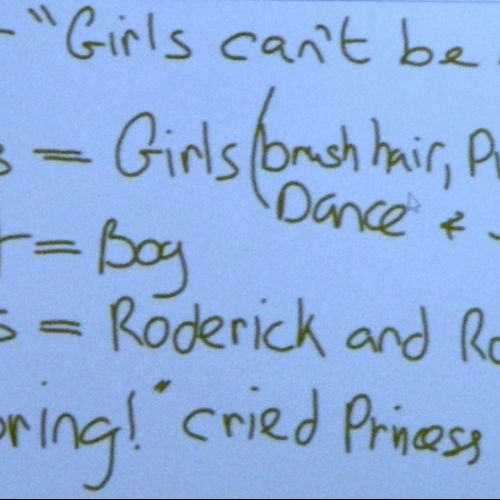 "Girls can't be
= Girls (brush hair,
Dance &
= Boy
= Roderick and
cried Princess